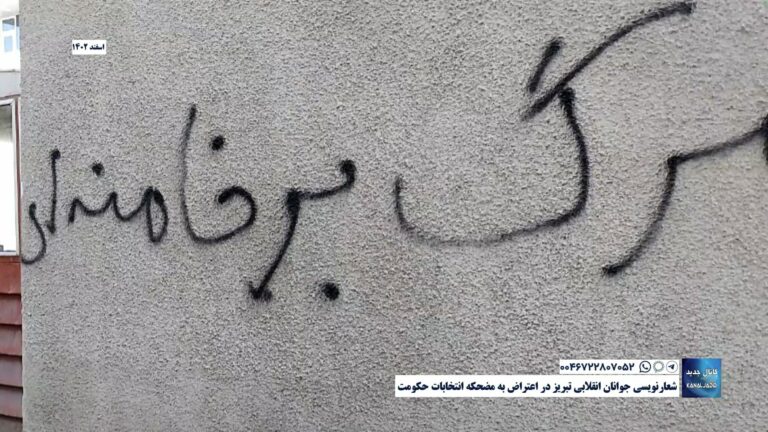 اسفند ۱۴۰۲
مرگ بر خامنه‌ای
۰۰۴۶۷۲۲۸۰۷۰۵۲
کانال جدید
KANAL JADID
شعارنویسی جوانان انقلابی تبریز در اعتراض به مضحکه انتخابات حکومت